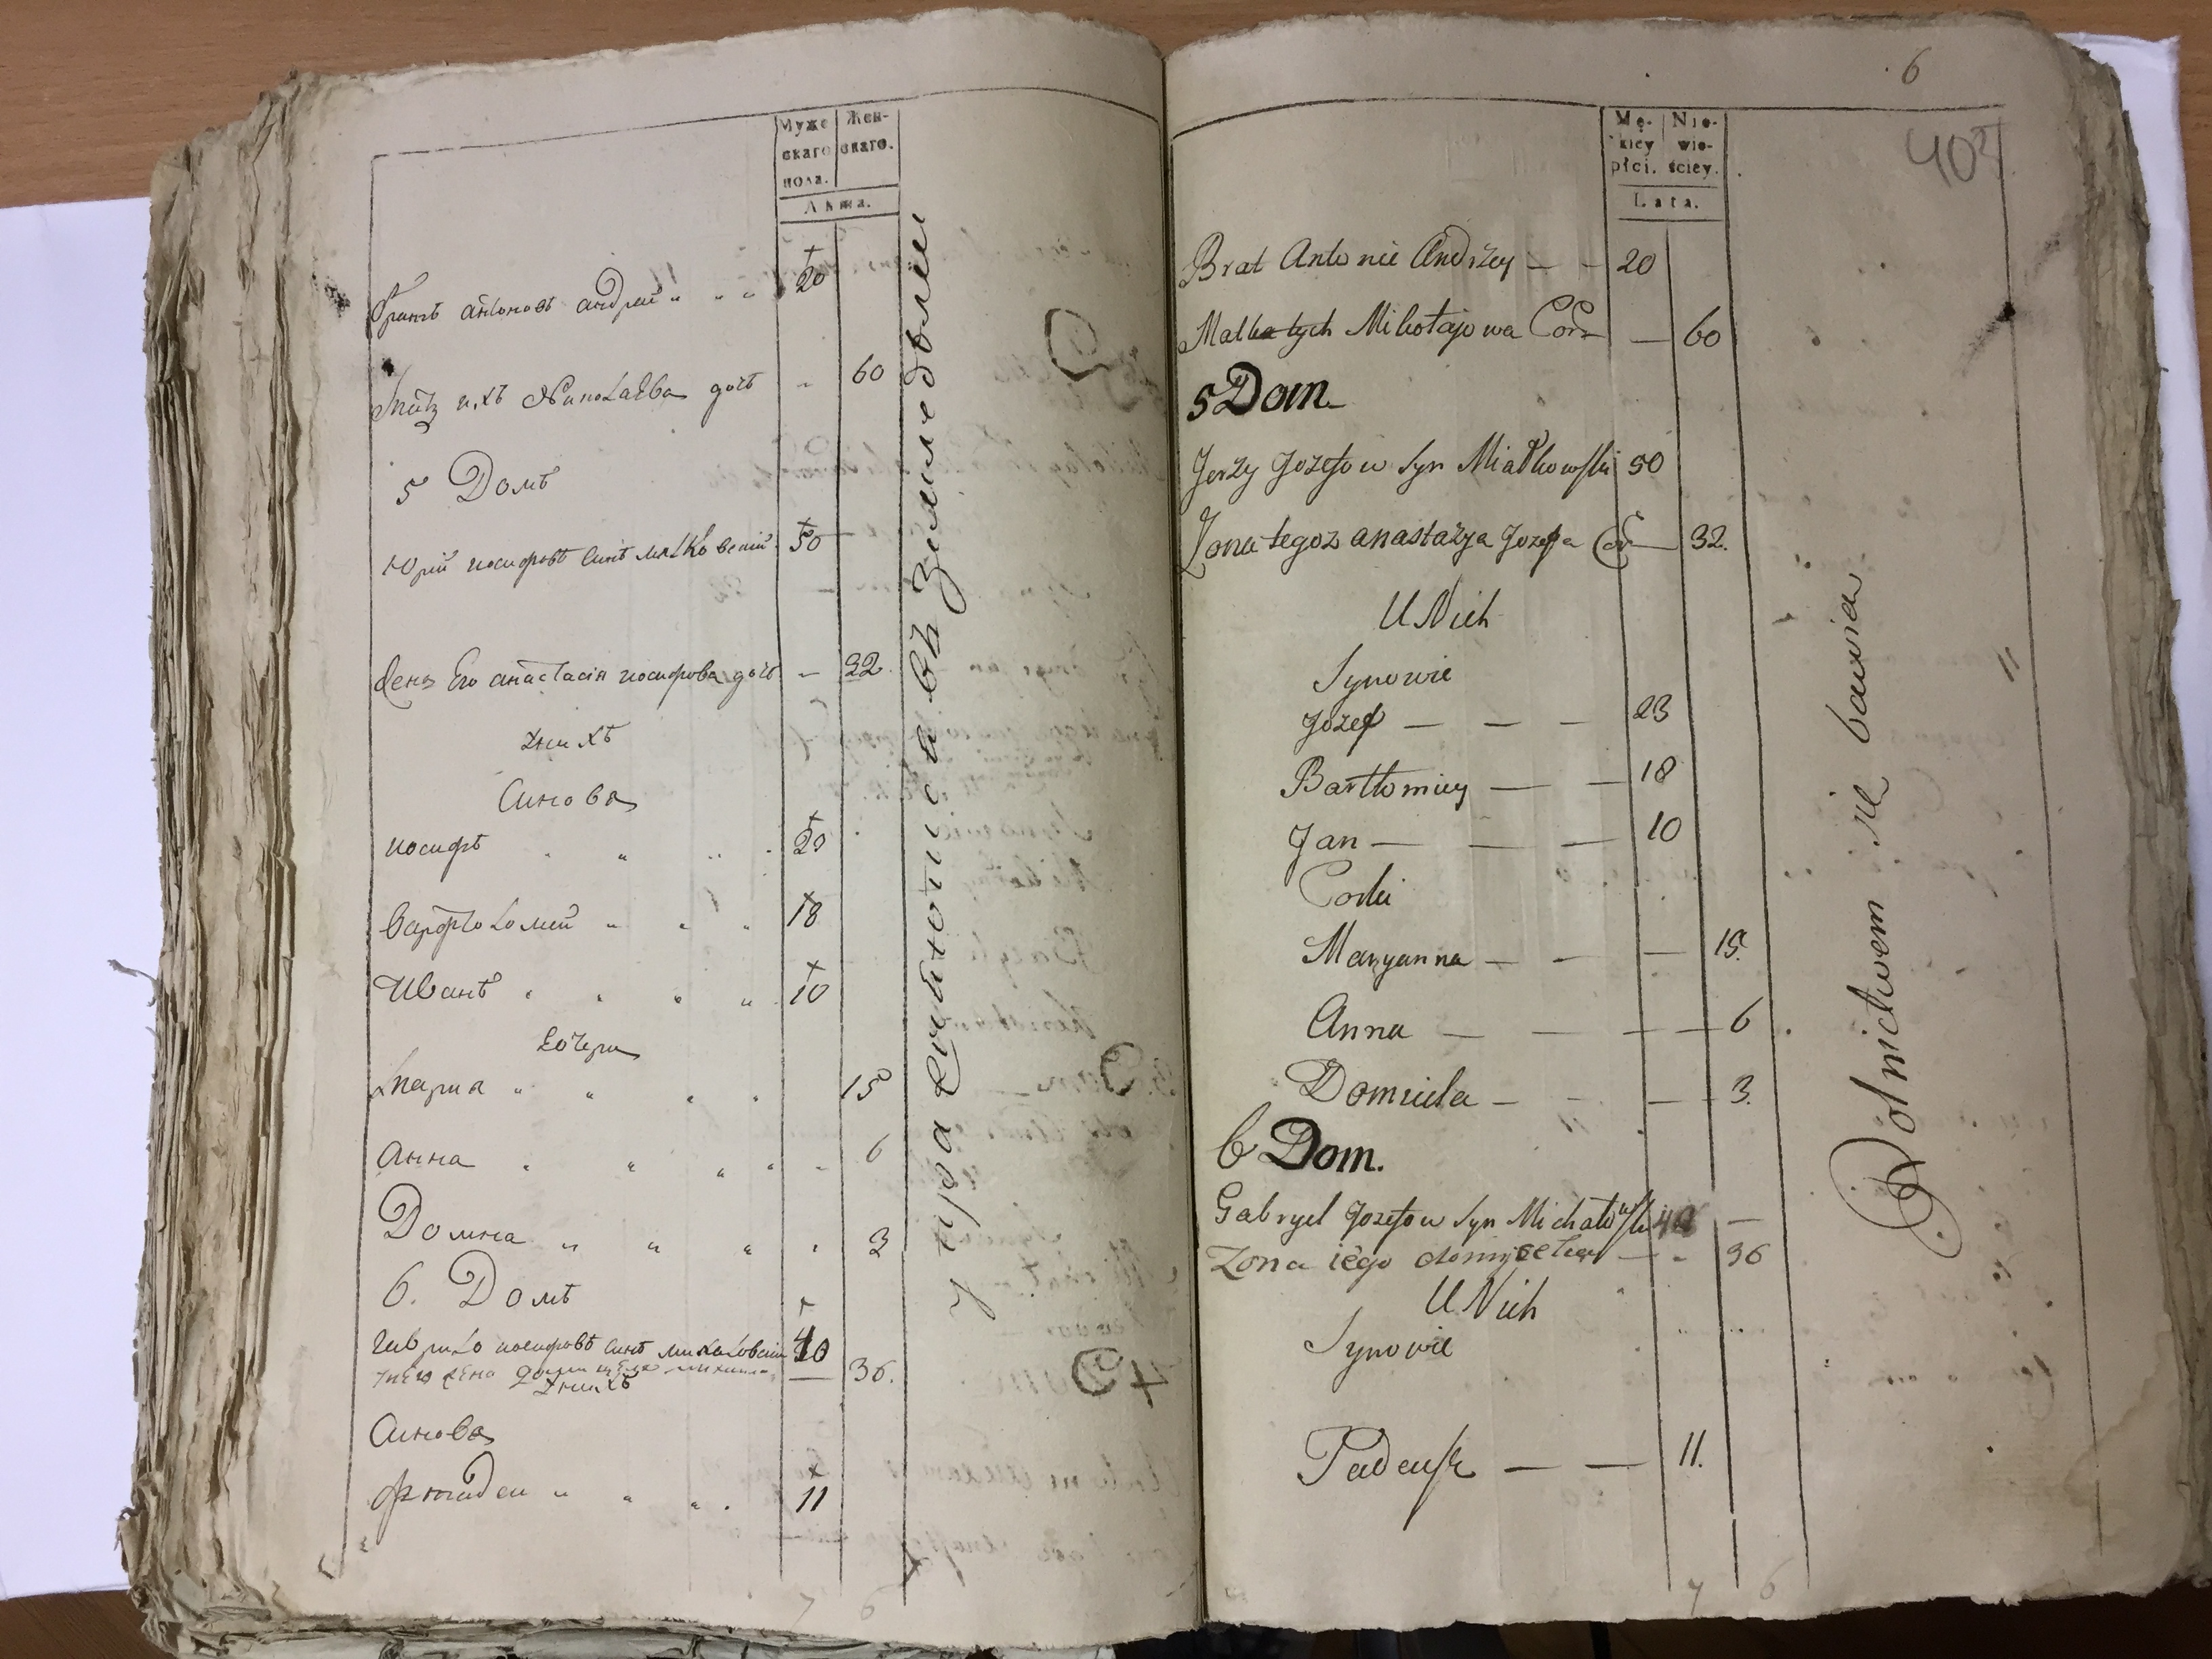 Муже
скаго
пола.
Жен-
скаго.
Лѣта.
Братъ антоновъ андрей 20
Мать ихъ Николаева дочь 60
5 Домъ
Юрій иосифовъ синъ мялковскій 50
Жена Его анастасія иосифова дочь 32
У нихъ
Синовя
иосифъ 23
Варфоломей 18
Иванъ 10
Дочери
Мария 15
Анна 6
Домна 3
6. Домъ
Гаврило иосифовъ синъ михаловскій 40
жена 36.
У нихъ
Синовя
11
7 6
6
403
Mę-
kiey
płci.
Nie-
wie-
ściey.
Lata.
Brat Antonie Andrzey — - 20
Matka tych Mikołajowa Cor — 60
5 Dom
Jerzy Jozefow syn Miałkowski 50
Zona tegoz anastazya Jozefa Cor — 32.
U Nich
Synowie
Jozef — — - 23
Bartłomiey — - 18
Jan — — — 10
Corki
Maryanna — - — 15.
Anna — — — — 6
Domicela — - — - 3.
6 Dom.
Gabryel Jozefow syn Michałowski 40 —
Zona iego domicela — - 36
U Nich
Synowie
Tadeusz — — 11.
7 6
Rolnictwem się bawia